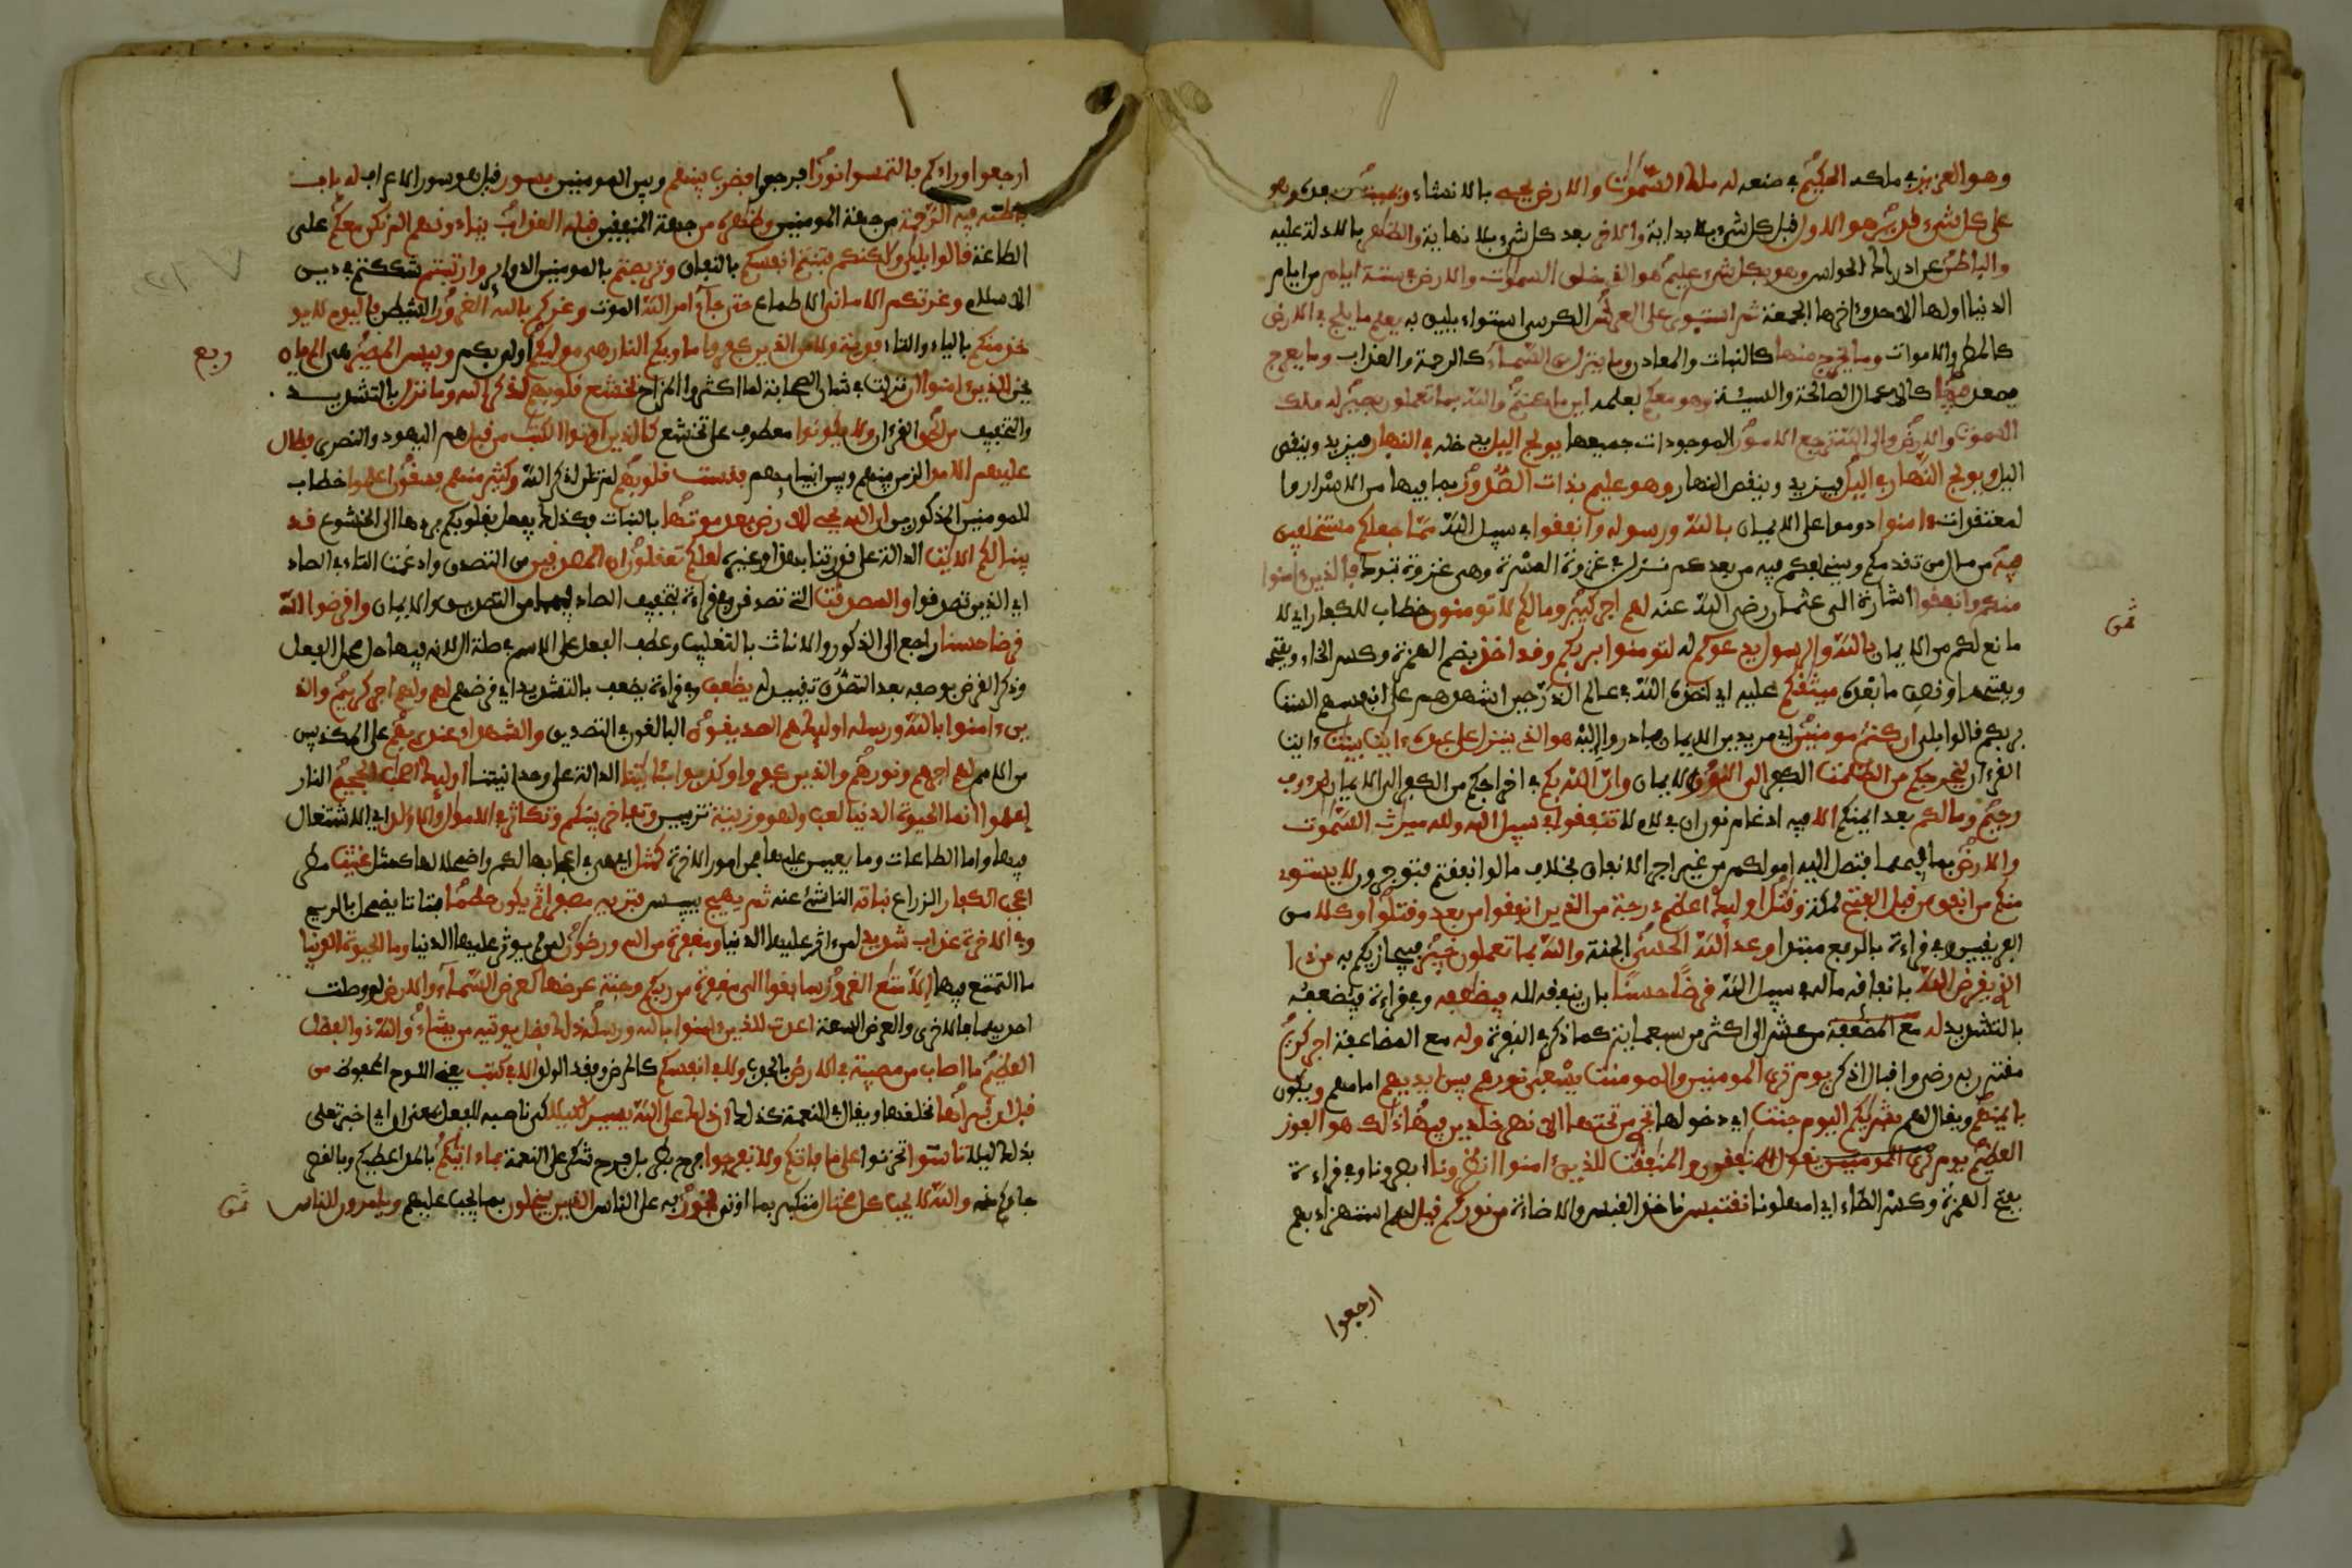 وهو العزيز في ملكه الحكيم في صنعه له ملك السموت والارض يحيي بالانشاء ويميت بعده وهو
على كل شيء قدير هو الاول قبل كل شيء بلا بداية والاخر بعد كل شيء بلا نهاية والظهر بالادلة عليه
والباطن عن ادراك الحواس وهو بكل شيء عليم هو الذي خلق السموت والارض في ستة ايام من ايام
الدنيا اولها الاحد وءاخرها الجمعة ثم استوى على العرش الكرسي استواء يليق به يعلم ما يلج في الارض
كالمطر والاموات وما يخرج منها كالنبات والمعادن وما ينزل من السماء كالرحمة والعذاب وما يعرج
يصعد فيها كالاعمال الصالحة والسيئة وهو معكم بعلمه اين ما كنتم والله بما تعملون بصير له ملك
السموت والارض والى الله ترجع الامور الموجودات جميعها يولج اليل يدخله في النهار فيزيد وينقص
اليل ويولج النهار في اليل فيزيد وينقص النهار وهو عليم بذات الصدور بما فيها من الاسرار وا
لمعتقدات ءامنوا دوموا على الايمان بالله ورسوله وانفقوا في سبيل الله مما جعلكم مستخلفين
فيه من مال من تقدمكم وسيخلفكم فيه من بعدكم نزل في غزوة العسرة وهي غزوة تبوك فالذين ءامنوا
منكم وانفقوا اشارة الى عثمان رضي الله عنه لهم اجر كبير وما لكم لا تومنون خطاب للكفار اي لا
مانع لكم من الايمان بالله والرسول يدعوكم له لتومنوا بربكم وقد اخذ بضم الهمزة وكسر الخاء وبفتحهـ
وبفتحهما ونصب ما بعده ميثقكم عليه اي اخذه الله في عالم الذر حين اشهدهم على انفسهم الست
بربكم قالوا بلى ان كنتم مومنين اي مريدين الايمان به فبادروا اليه هو الذي ينزل على عبده ءايت بينت ءايت
القرءان ليخرجكم من الظلمت الكفر الى النور الايمان وان الله بكم في اخراجكم من الكفر الى الايمان لرءوف
رحيم وما لكم بعد ايمنكم الا فيه ادغام نون ان في لام لا تنفقوا في سبيل الله ولله ميرث السموت
والارض بما فيهما فتصل اليه اموالكم من غير اجر الانفاق بخلاف ما لو انفقتم فتوجرون لا يستوي
منكم من انفق من قبل الفتح لمكة وقتل اوليك اعظم درجة من الذين انفقوا من بعد وقتلوا وكلا من
الفريقين وفي قراءة بالرفع مبتدا وعد الله الحسنى الجنة والله بما تعملون خبير فيجازيكم به من ذا
الذي يقرض الله بانفاق ماله في سبيل الله قرضا حسنا بان ينفقه لله فيضعفه وفي قراءة فيضعفه
بالتشديد له مع المضعفة من عشر الى اكثر من سبعماية كما ذكر في البقرة وله مع المضاعفة اجر كريم
مقترن به رضى واقبال اذكر يوم ترى المومنين والمومنت يسعى نورهم بين ايديهم امامهم ويكون
بايمنهم ويقال لهم بشريكم اليوم جنت اي دخولها تجري من تحتها الانهر خلدين فيها ذلك هو الفوز
العظيم يوم يقول المنفقون والمنفقت للذين ءامنوا انظرونا ابصرونا وفي قراءة
بفتح الهمزة وكسر الظاء اي امهلونا نقتبس ناخذ القبس والاضاءة من نوركم قيل لهم استهزاء بهم
ارجعوا
ثمن
ارجعوا وراءكم فالتمسوا نورا فرجعوا فضرب بينهم وبين المومنين بسور قيل هو سور الاعراف له باب
باطنه فيه الرحمة من جهة المومنين وظهره من جهة المنفقين قبله العذاب ينادونهم الم نكن معكم على
الطاعة قالوا بلى ولكنكم فتنتم انفسكم بالنفاق وتربصتم بالمومنين الدواير وارتبتم شككتم في دين
الاسلام وغرتكم الاماني الاطماع حتى جاء امر الله الموت وغركم بالله الغرور الشيطن فاليوم لا يو
خذ منكم بالياء والتاء فدية ولا من الذين كفروا ماويكم النار هي موليكم اولى بكم وبيس المصير هي الم يان
ربع
يحن للذين ءامنوا نزلت في شان الصحابة لما اكثروا المزاح ان تخشع قلوبهم لذكر الله وما نزل بالتشديد
والتخفيف من الحق القرءان ولا يكونوا معطوف على تخشع كالذين اوتوا الكتب من قبل هم اليهود والنصرى فطال
عليهم الامد الزمن بينهم وبين انبيايهم فقست قلوبهم لم تلن لذكر الله وكثير منهم فسقون اعلموا خطاب
للمومنين المذكورين ان الله يحيي الارض بعد موتها بالنبات فكذلك يفعل بقلوبكم يردها الى الخشوع قد
بينا لكم الايت الدالة على قدرتنا بهذا وغيره لعلكم تعقلون ان المصدقين من التصدق وادغمت التاء في الصاد
اي الذين تصدقوا والمصدقت التي تصدقن وفي قراءة بتخفيف الصاد فيهما من التصديق والايمان واقرضوا الله
قرضا حسنا راجع الى الذكور والاناث بالتغليب وعطف الفعل على الاسم في صلة ال لانه فيها حل محل الفعل
وذكر القرض بوصفه بعد التصدق تقييد له يضعف وفي قراءة يضعف بالتشديد اي قرضهم لهم ولهم اجر كريم والذ
ين ءامنوا بالله ورسله اوليك هم الصديقون البالغون في التصديق والشهداء عند ربهم على المكذبين
من الامم لهم اجرهم ونورهم والذين كفروا وكذبوا بئايتنا الدالة على وحدانيتنا اوليك اصحب الجحيم النار
اعلموا انما الحيوة الدنيا لعب ولهو وزينة تزيين وتفاخر بينكم وتكاثر في الاموال والاولاد اي الاشتغال
فيها واما الطاعات وما يعين عليها فمن امور الاخرة كمثل اي هي في اعجابها لكم واضمحلالها كمثل غيث مطر
اعجب الكفار الزراع نباته الناشئ عنه ثم يهيج ييبس فتريه مصفرا ثم يكون حطما فتاتا يضمحل بالريح
وفي الاخرة عذاب شديد لمن ءاثر عليها الدنيا ومغفرة من الله ورضون لمن لم يوثر عليها الدنيا وما الحيوة الدنيا
ما التمتع فيها الا متع الغرور سابقوا الى مغفرة من ربكم وجنة عرضها كعرض السماء والارض لو وصلت
احديهما بالاخرى والعرض السعة اعدت للذين ءامنوا بالله ورسله ذلك فضل الله يوتيه من يشاء والله ذو الفضل
العظيم ما اصاب من مصيبة في الارض بالجدب ولا في انفسكم كالمرض وفقد الولد الا في كتب يعني اللوح المحفوظ من
قبل ان نبرأها نخلقها ويقال في النعمة كذلك ان ذلك على الله يسير لكيلا كي ناصبة للفعل بمعنى ان اي اخبر تعلى
بذلك ليلا تاسوا تحزنوا على ما فاتكم ولا تفرحوا فرح بطر بل فرح شكر على النعمة بما ءاتيكم بالمد اعطيكم وبالقصر
جاءكم منه والله لا يحب كل مختال متكبر بما اوتي فخور به على الناس الذين يبخلون بما يجب عليهم ويامرون الناس
ثمن